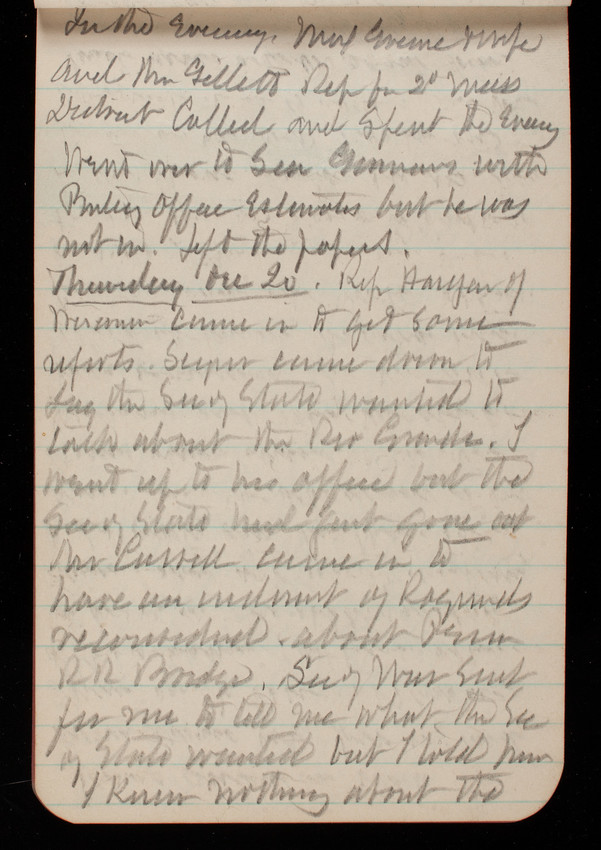 In the Evening. Maj Greene & wife
and Mr Gillett Rep for 2d Mass
District Called and Spent the Evening
Went over to Sen Gormans with
Printing Office Estimates but he was
not in. Left the papers.
Thursday Dec 20. Rep Haugen of
Wisconsin came in to get some
reports. came down to
say the Secy State wanted to
talk about the Rio Grande. I
went up to his office but the
Secy State had just gone out
Mr came in to
have an indorsmt of Raymonds
reconsidered about Penn
RR Bridge. Secy War Sent
for me to tell me what the Sec
of State wanted but I told him
I knew nothing about the